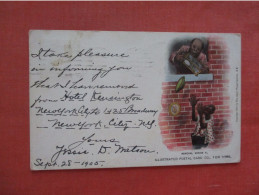 It takes pleasure
in informing you
that I have moved
from Hotel Kensington
New York City to 1625 Broadway
New York City - N.Y.
Yours
D. Watson
Sept. 28 - 1905.
ILLUSTRATED POSTAL CARD CO., NEW YORK.